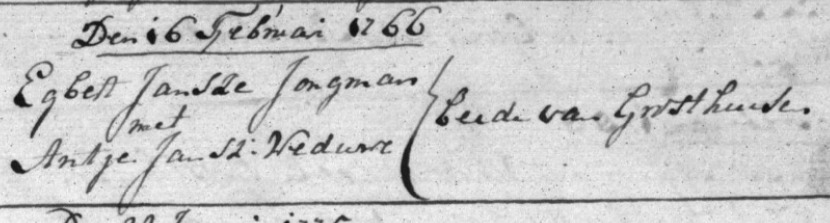 Den 16 Febrúari 1766
Egbert Jansze Jongman
met
Antje Jansz: Weduwe
beide van Grosthuisen